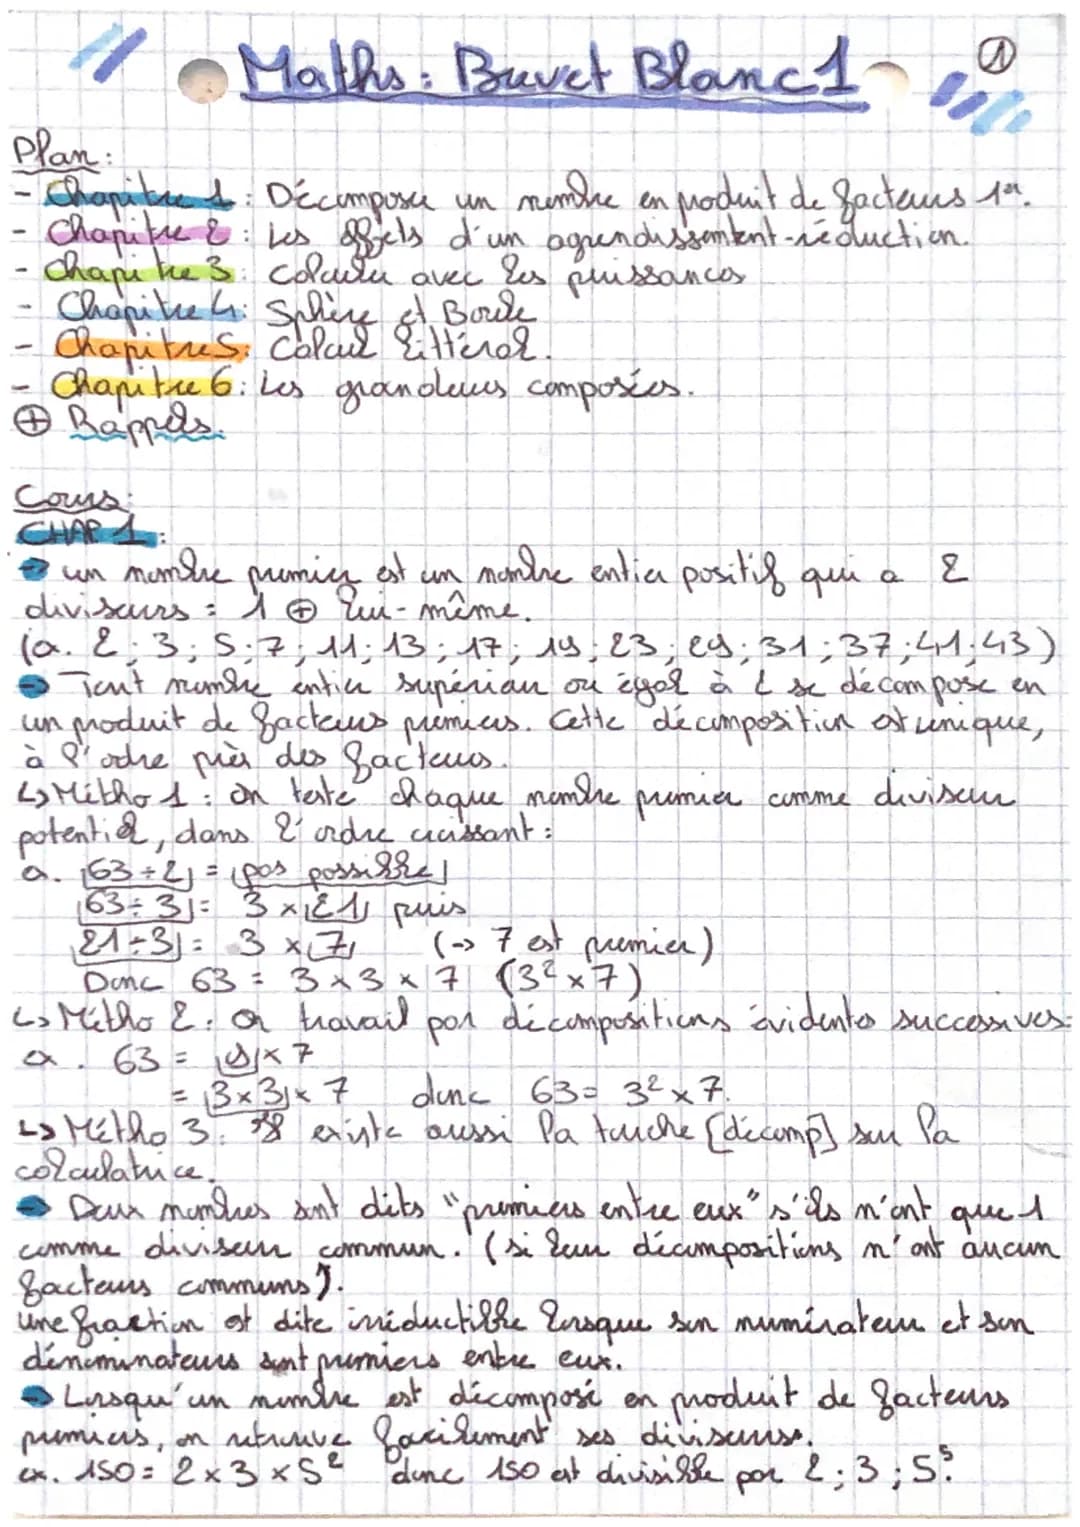 Maths : Brevet Blanc 1
①
Plan :
- Chapitre 1 : Décomposer un nombre en produit de facteurs 1er.
- Chapitre 2 : Les effets d'un agrandissement-réduction.
- Chapitre 3 : Calculer avec les puissances
- Chapitre 4 : Sphère et Boule
- Chapitre 5 : Calcul littéral.
- Chapitre 6 : Les grandeurs composées.
⊕ Rappels.
Cours :
CHAP 1 :
→ un nombre premier est un nombre entier positif qui a 2
diviseurs : 1 ⊕ lui-même.
(a. 2 ; 3 ; 5 ; 7 ; 11 ; 13 ; 17 ; 19 ; 23 ; 29 ; 31 ; 37 ; 41 ; 43)
→ Tout nombre entier supérieur ou égal à 2 se décompose en
un produit de facteurs premiers. Cette décomposition est unique,
à l'odre près des facteurs.
↳ Métho 1 : on teste chaque nombre premier comme diviseur
potentiel, dans l'ordre croissant :
a. 63 ÷ 2 = pas possible
63 ÷ 3 = 3 × 21 puis
21 ÷ 3 = 3 × 7 (→ 7 est premier)
Donc 63 = 3 × 3 × 7 (3² × 7)
↳ Métho 2 : on travail par décompositions évidentes successives :
a. 63 = 9 × 7
= 3 × 3 × 7 donc 63 = 3² × 7.
↳ Métho 3 : Il existe aussi la touche [décomp] sur la
calculatrice.
→ Deux nombres sont dits "premiers entre eux" s'ils n'ont que 1
comme diviseur commun. (si leur décompositions n'ont aucun
facteurs communs).
Une fraction est dite irréductible lorsque son numérateur et son
dénominateurs sont premiers entre eux.
→ Lorsqu'un nombre est décomposé en produit de facteurs
premiers, on retrouve facilement ses diviseurs.
ex. 150 = 2 × 3 × 5² donc 150 est divisible par 2 ; 3 ; 5